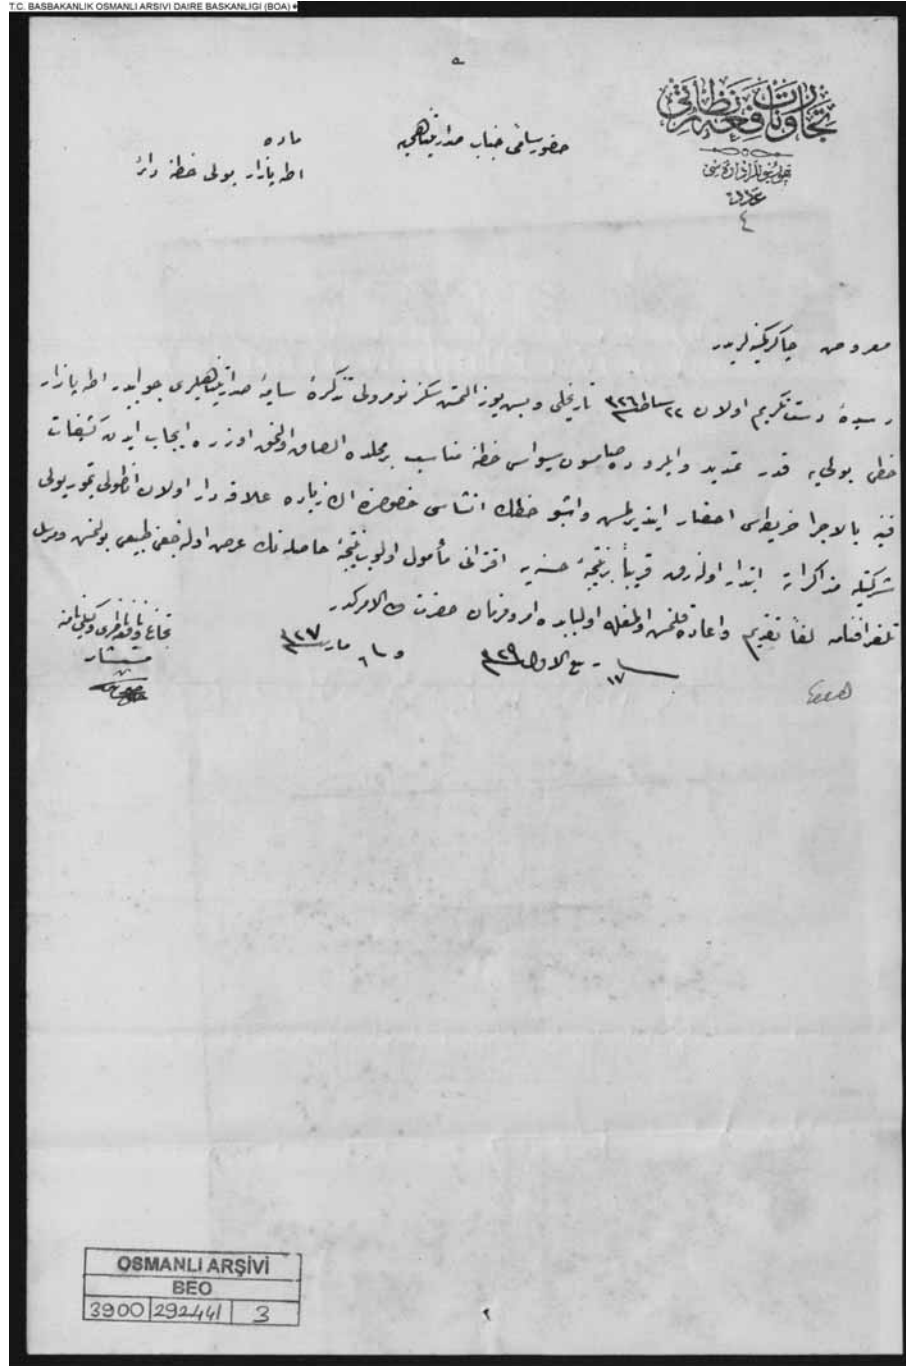 T.C. BASBAKANLIK OSMANLI ARSIVI DAIRE BASKANLIGI (BOA)
تجارت و نافعه نظارتی
عدد
٤
حضور سامئ جناب صدارتپناهی‌یه
ماده
اطه‌پازار بولی خطنه دائر
معروض چاكر كمینه‌لریدر
رسیدهٔ دست تكریم اولان ٢٢ شباط ٣٢٦ تاریخلی و بش یوز التمش سكز نومرولی تذكرهٔ سامیهٔ صدارتپناهیلری جوابیدر اطه‌پازار
خطی بولی‌یه قدر تمدید و ایلروده صامسون سیواس خطنه مناسب بر محلده الصاق اولنمق اوزره ایجاب ایدن كشفیات
فنیه بالاجرا خریطه‌سی احضار ایتدیرلمش و اشبو خطك انشاسی خصوصنده اك زیاده علاقه‌دار اولان اناطولی تیموریولی
شركتیله مذاكراته ابتدار اولنه‌رق قریباً بر نتیجهٔ حسنه‌یه اقترانی مأمول اولوب نتیجهٔ حاصله‌نك عرض اوله‌جغی طبیعی بولنمش و
تلغرافنامه لفاً تقدیم و اعاده قلنمش اولمغله اولبابده امر و فرمان حضرت من له الامركدر
فی ١٧ ربیع الاول ٣٢٩ و فی ٦ مارت ٣٢٧
تجارت و نافعه ناظری وكیلی نامنه
مستشار
OSMANLI ARŞİVİ
BEO
3900 292441 3
٢